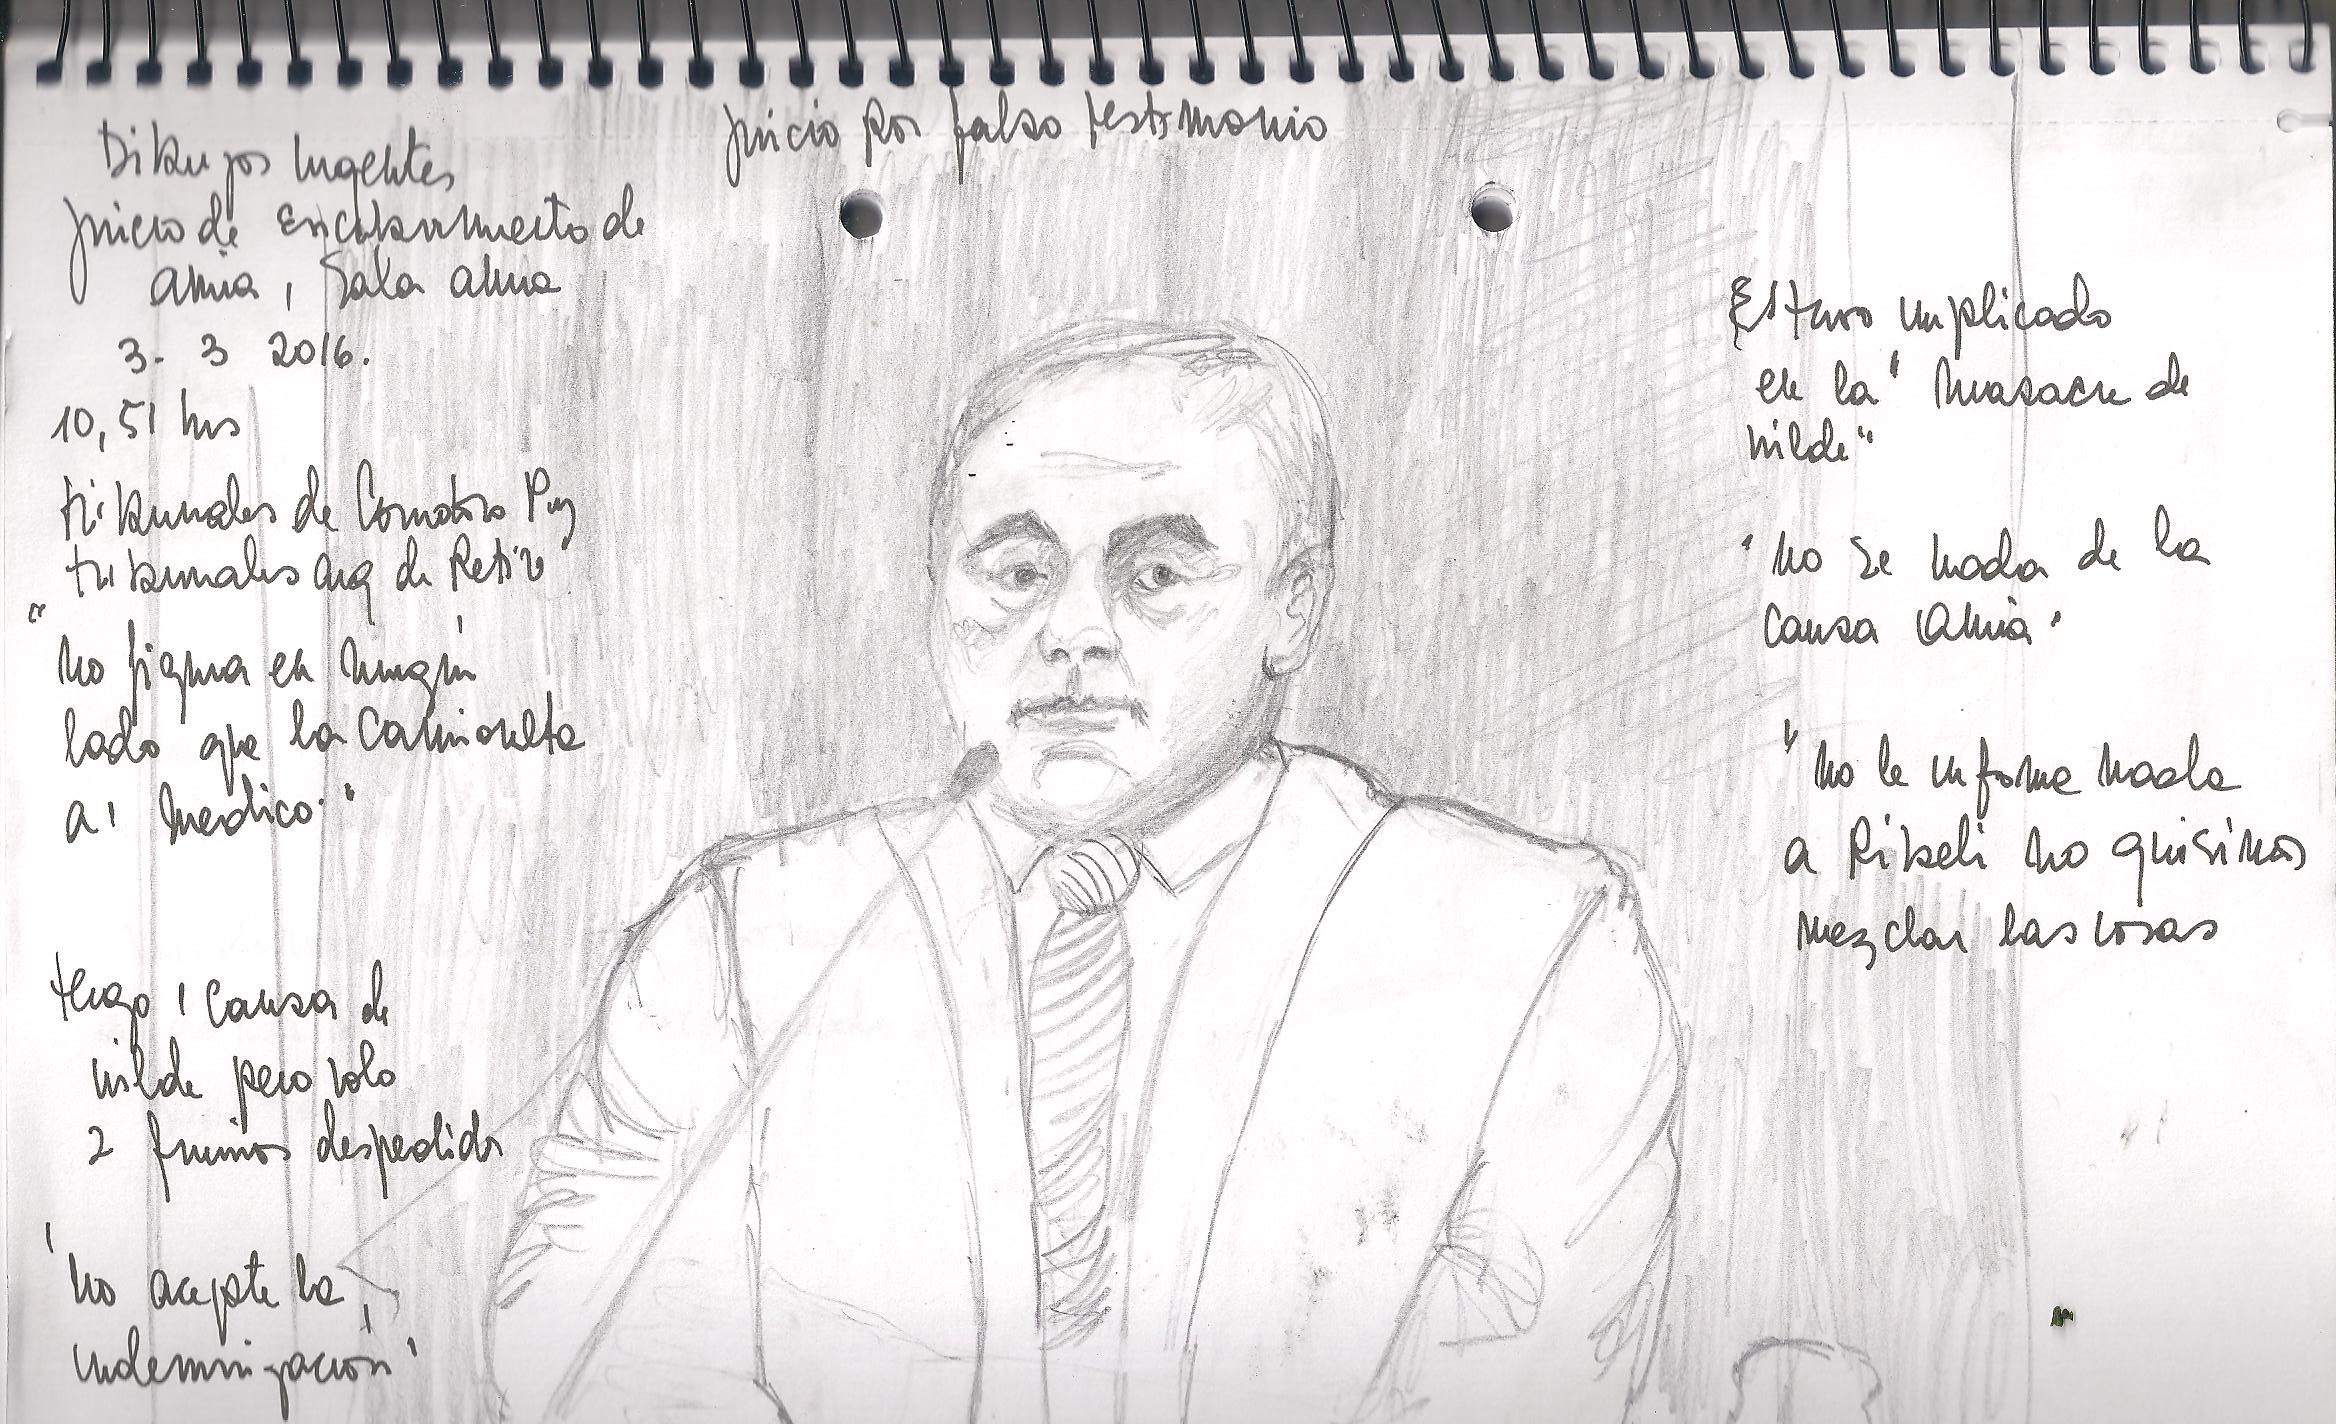 Juicio por falso testimonio
Dibujos urgentes
Juicio de Encubrimiento de
Amia, Sala Amia
3. 3 2016.
10,51 hrs
tribunales de Comodoro Py
tribunales Arg de Retiro
"
no figura en ningún
lado que la camioneta
a! medico."
tengo 1 causa de
wilde pero solo
2 fuimos despedidos
'
no acepte la
indemnización'
Estuvo implicado
en la "masacre de
wilde"
"no se nada de la
causa Amia"
"no le informe nada
a Ribeli no quisimos
mezclar las cosas